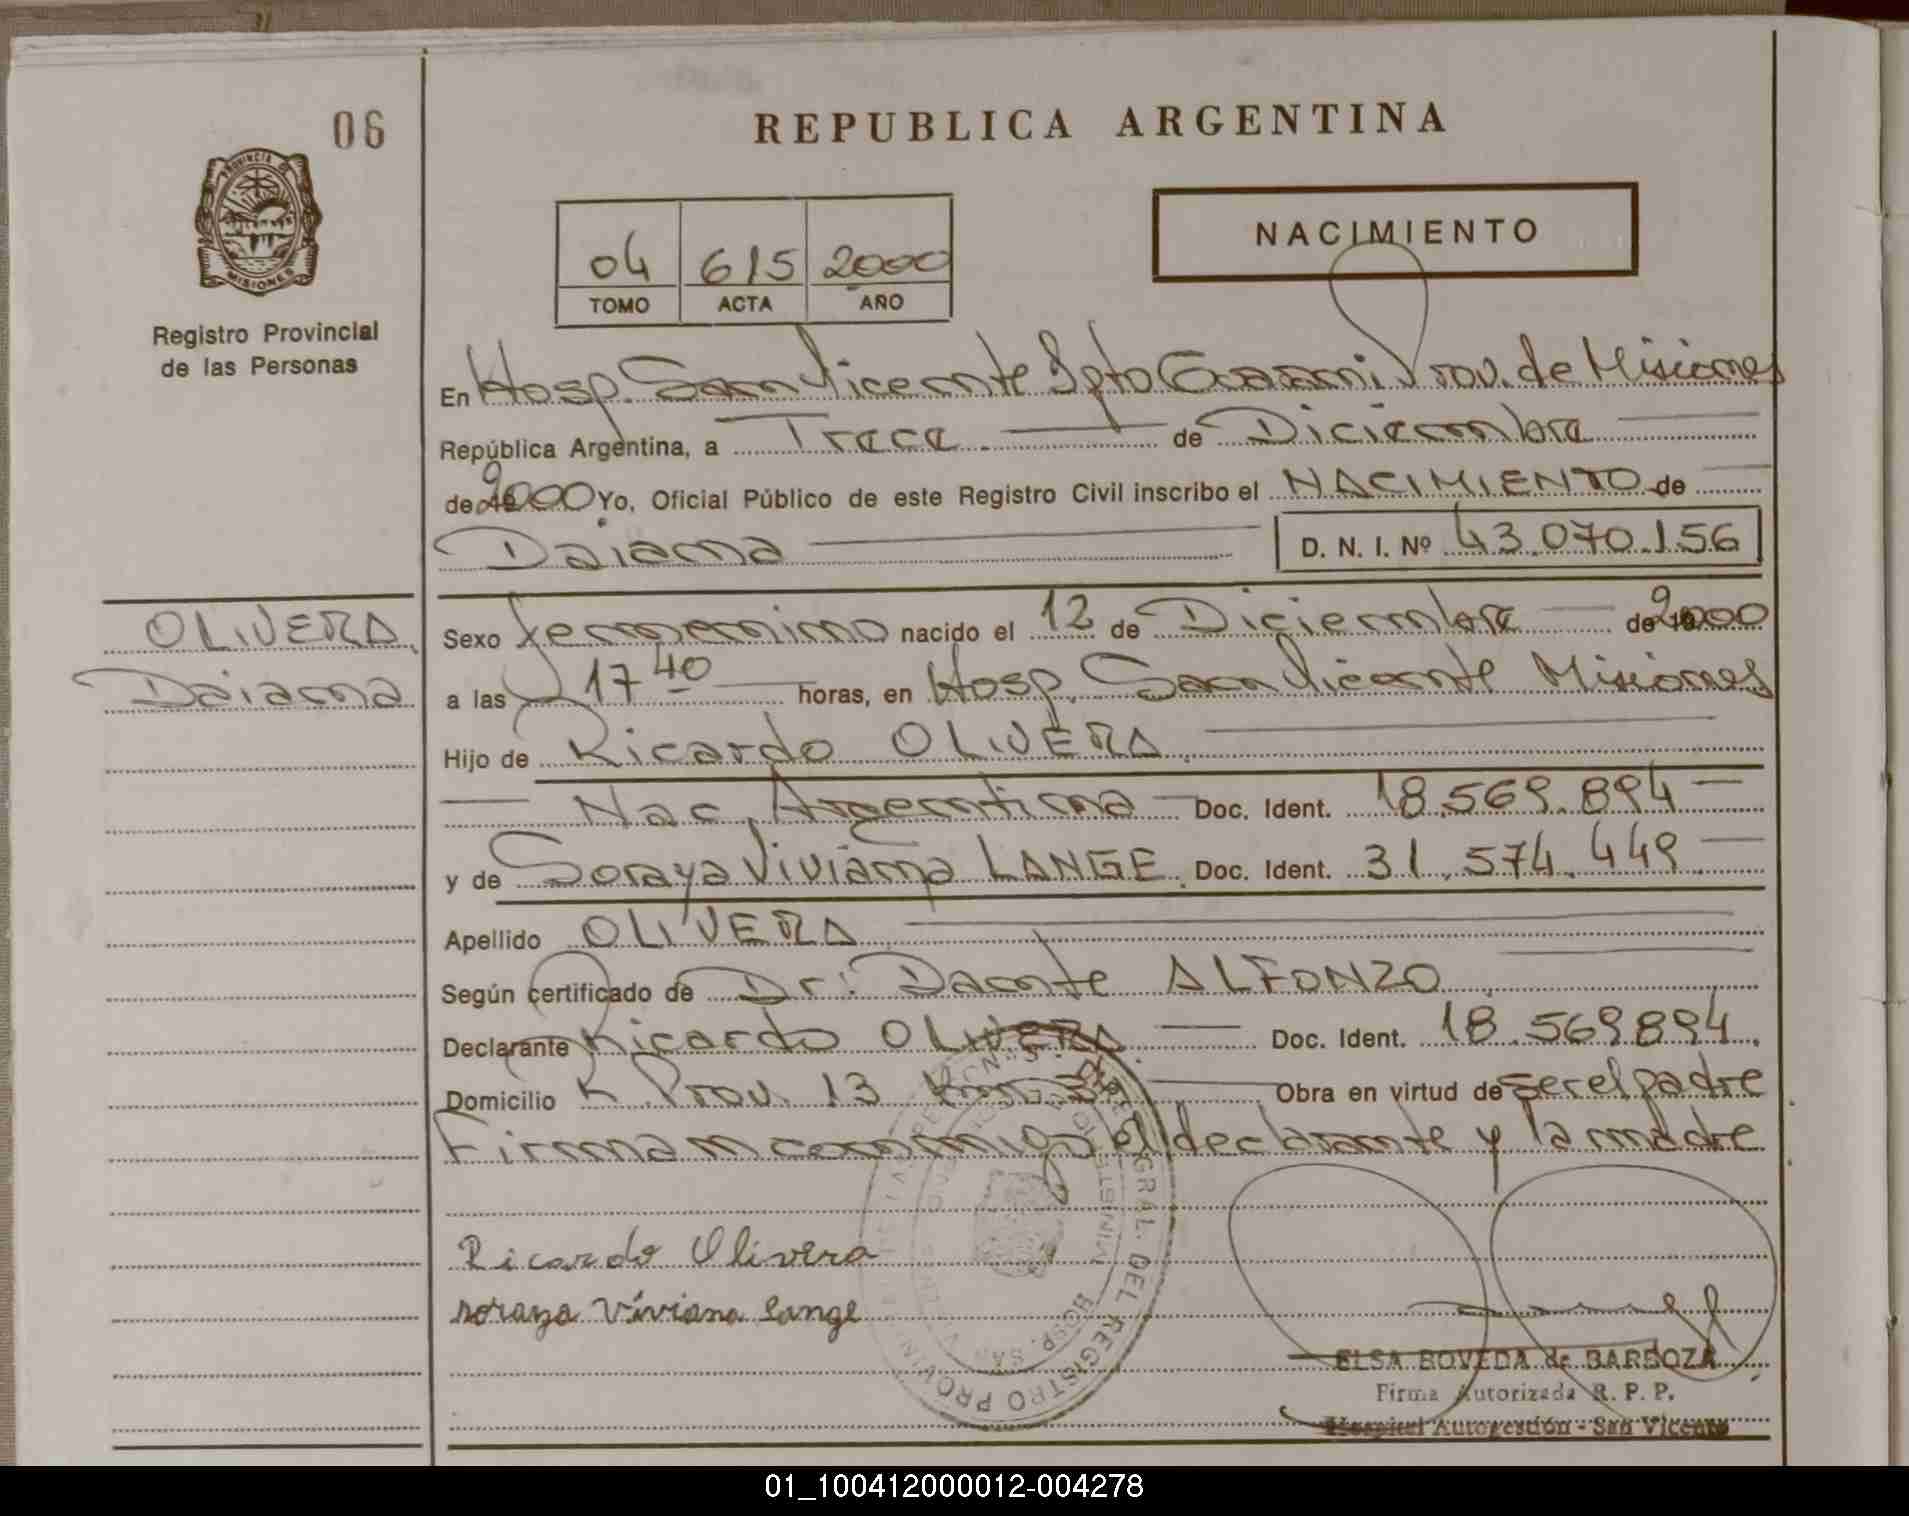 06
REPUBLICA ARGENTINA
PROVINCIA DE
MISIONES
Registro Provincial
de las Personas
04 615 2000
TOMO ACTA AÑO
NACIMIENTO
En Hosp. San Vicente Dpto Guarani Prov. de Misiones
República Argentina, a Trece de Diciembre
de 2000 Yo, Oficial Público de este Registro Civil inscribo el NACIMIENTO de
Daiana D. N. I. Nº 43.070.156
OLIVERA
Daiana
Sexo femenino nacido el 12 de Diciembre de 2000
a las 17 40 horas, en Hosp. San Vicente Misiones
Hijo de Ricardo OLIVERA
Nac. Argentina Doc. Ident. 18.569.894
y de Soraya Viviana LANGE Doc. Ident. 31.574.449
Apellido OLIVERA
Según certificado de Dr: Dante ALFONZO
Declarante Ricardo OLIVERA Doc. Ident. 18.569894.
Domicilio R. Prov. 13 Km Obra en virtud de ser el padre
Firman conmigo el declarante y la madre
Ricardo Olivera
soraya Viviana Lange
GRAL. DEL REGISTRO PROVIN
HOSP. SAN
ELSA BOVEDA de BARBOZA
Firma Autorizada R. P. P.
Hospital Autogestión - San Vicente
01_100412000012-004278